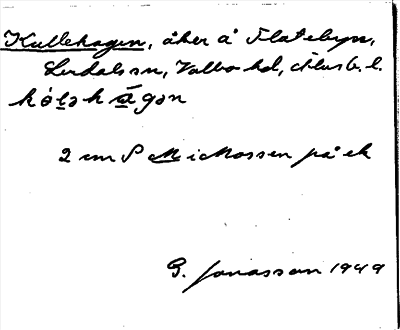 Kullehagen, åker å Flatebyn,
Lerdals sn, Valbo hd, Älvsb. l.
kól̥əhágən
2 cm S M i Mossen på ek
G. Jonasson 1949